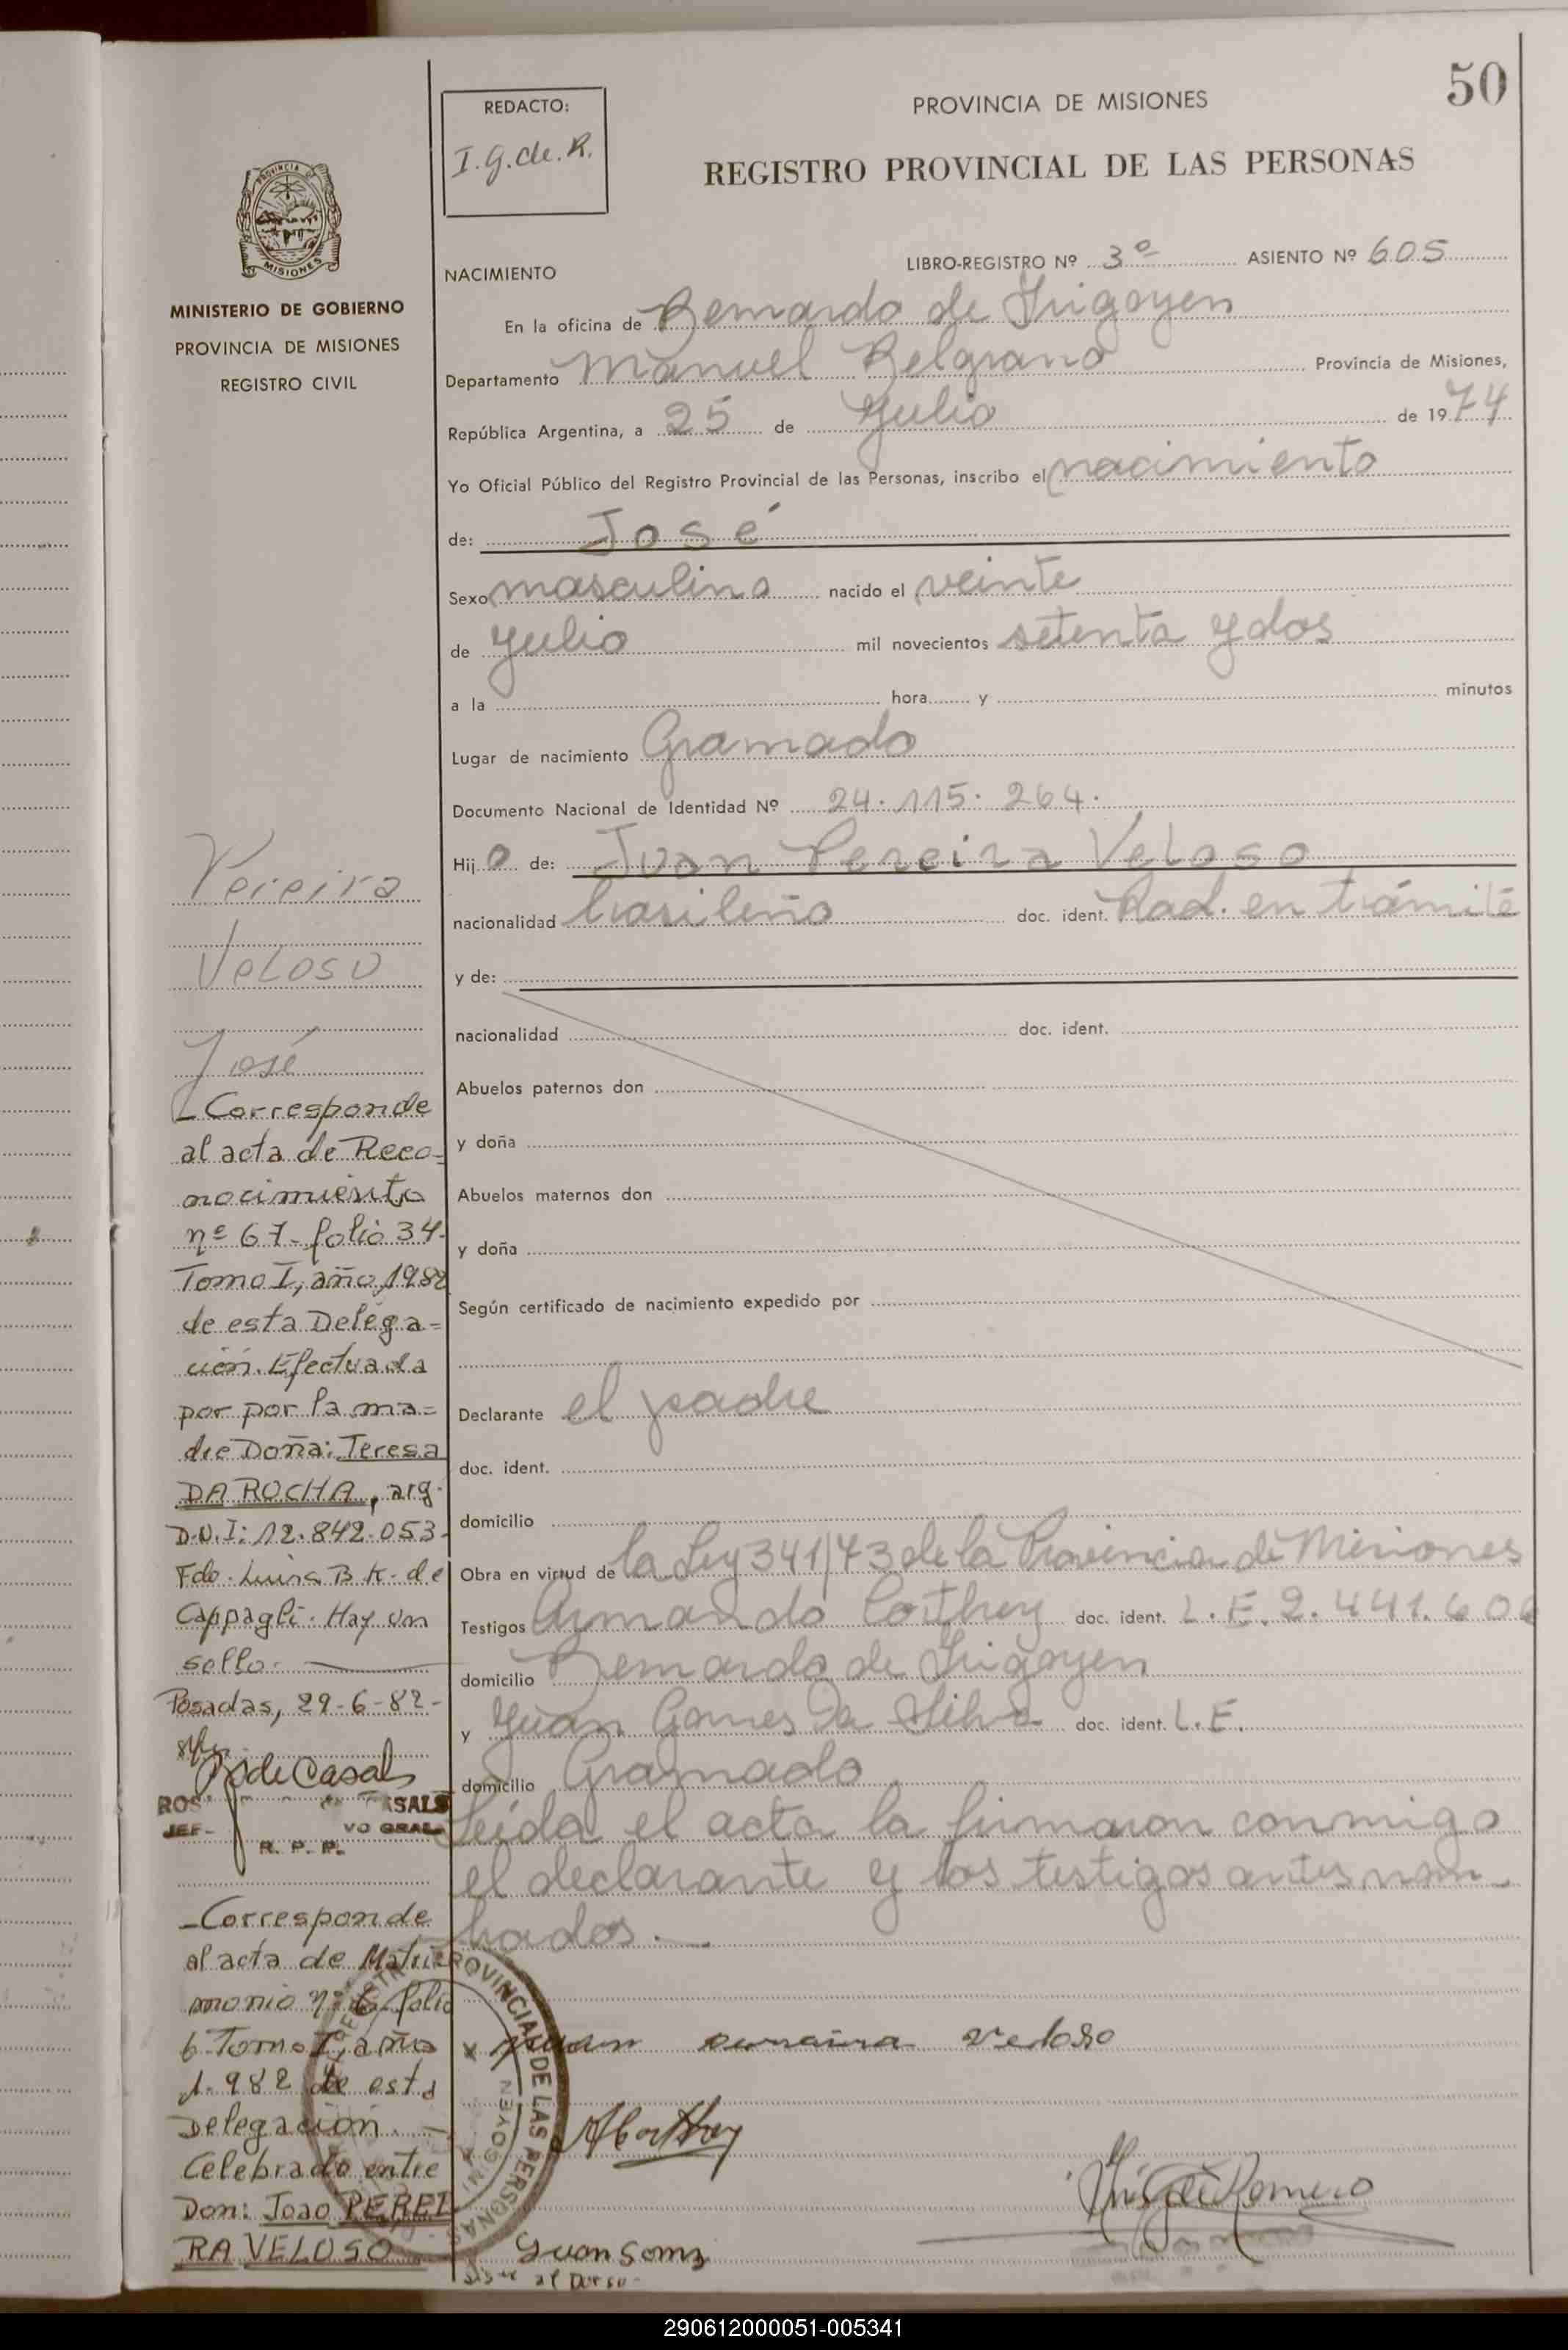 50
REDACTO:
I.G.de.R.
PROVINCIA DE MISIONES
REGISTRO PROVINCIAL DE LAS PERSONAS
PROVINCIA DE
MISIONES
MINISTERIO DE GOBIERNO
PROVINCIA DE MISIONES
REGISTRO CIVIL
LIBRO-REGISTRO Nº 3º ASIENTO Nº 605
NACIMIENTO
En la oficina de Bernardo de Irigoyen
Departamento Manuel Belgrano Provincia de Misiones,
República Argentina, a 25 de Julio de 1974
Yo Oficial Público del Registro Provincial de las Personas, inscribo el nacimiento
de: José
Sexo masculino nacido el veinte
de Julio mil novecientos setenta y dos
a la hora y minutos
Lugar de nacimiento Gramado
Documento Nacional de Identidad Nº 24.115.264.
Hijo de: Juan Pereira Veloso
nacionalidad brasileño doc. ident. Rad. en trámite
y de:
nacionalidad doc. ident.
Abuelos paternos don
y doña
Abuelos maternos don
y doña
Según certificado de nacimiento expedido por
Declarante el padre
doc. ident.
domicilio
Obra en virtud de la Ley 341/73 de la Provincia de Misiones
Testigos Armando Corthey doc. ident. L.E. 2.441.606
domicilio Bernardo de Irigoyen
y Juan Gomes Da Silva doc. ident. L.E.
domicilio Gramado
Leída el acta la firmaron conmigo
el declarante y los testigos antes nom-
brados.—
x juan Veloso
ACorthey
I.G. de Romero
Juan Gomz
Sigue al Dorso-
Pereira
Veloso
José
-Corresponde
al acta de Reco=
nocimiento
nº 67-folio 34-
Tomo I, año, 1982
de esta Delega=
ción. Efectuada
por por la ma=
dre Doña: Teresa
DA ROCHA, arg.
D.N.I: 12.842.053-
Fdo. Luisa B K. de
Cappagli. Hay un
sello. —
Posadas, 29-6-82-
R de Casals
ROS CASALS
JEF- VO GRAL
R. P. P.
-Corresponde
al acta de Matri=
monio nº 6- folio
6 Tomo I, año
1.982 de esta
Delegación.—
Celebrado entre
Don: Joao PEREI
RA VELOSO
REGISTRO PROVINCIAL DE LAS PERSONAS
290612000051-005341